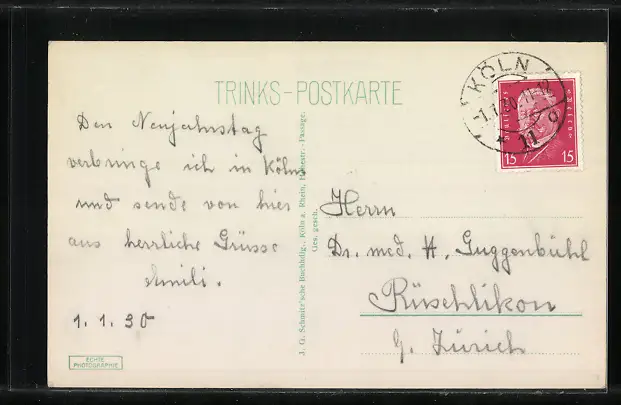 TRINKS-POSTKARTE
KÖLN
-1.1.30
* 11 o
15 15
Den Neujahrstag
verbringe ich in Köln
und sende von hier
aus herrliche Grüsse
Emili.
1.1.30
ECHTE
PHOTOGRAPHIE
J. G. Schmitz'sche Buchhdlg., Köln a. Rhein, Hohestr.-Passage.
Ges. gesch.
Herrn
Dr. med. H. Guggenbühl
Rüschlikon
b. Zürich